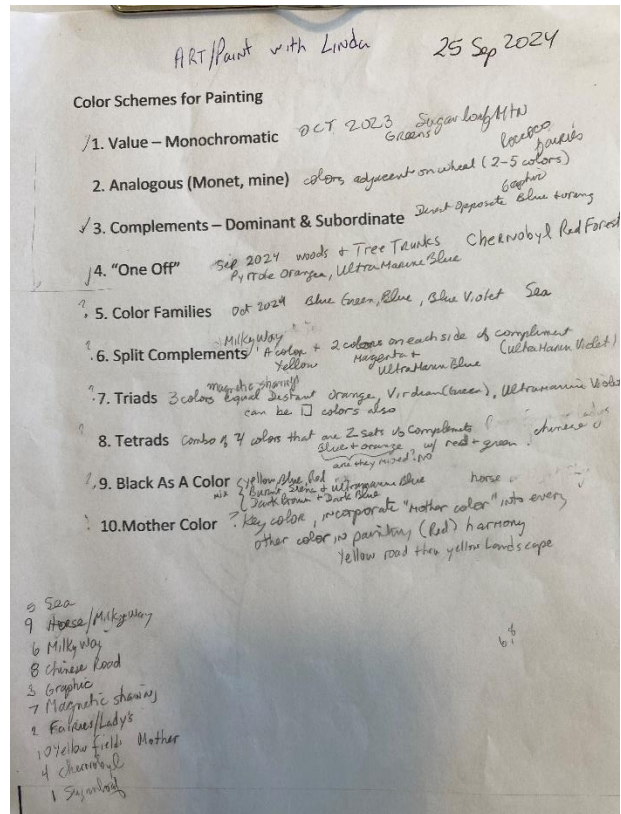 ART/Paint with Linda 25 Sep 2024
Color Schemes for Painting
1. Value – Monochromatic OCT 2023 Sugarloaf MTN
Greens
rococo
fairies
2. Analogous (Monet, mine) colors adjacent on wheel (2-5 colors)
Graphic
3. Complements – Dominant & Subordinate Direct Opposite Blue + orang
4. "One Off" Sep 2024 woods + Tree Trunks Chernobyl Red Forest
Pyrrole Orange, UltraMarine Blue
5. Color Families Oct 2024 Blue Green, Blue, Blue Violet Sea
Milky Way
6. Split Complements A color + 2 colors on each side of compliment
Yellow Magenta + (UltraMarin Violet)
UltraMarin Blue
magnetic sharing
7. Triads 3 colors equal Distant orange, Virdian (Green), Ultramarine Viole
can be □ colors also
8. Tetrads Combo of 4 colors that are 2 sets of complements chinese
Blue + orange w/ red + green
are they mixed? no
9. Black As A Color Yellow, Blue, Red horse
mix Burnt Siena + Ultramarine Blue
Dark brown + Dark Blue
10.Mother Color ? Key color, incorporate "Mother color" into every
other color in painting (Red) harmony
Yellow road then yellow Landscape
5 Sea
9 Horse/Milkyway
6 Milky Way
8 Chinese Road
3 Graphic
7 Magnetic sharing
2 Fairies/Lady's
10 Yellow fields Mother
4 Chernobyl
1 Sugarloaf